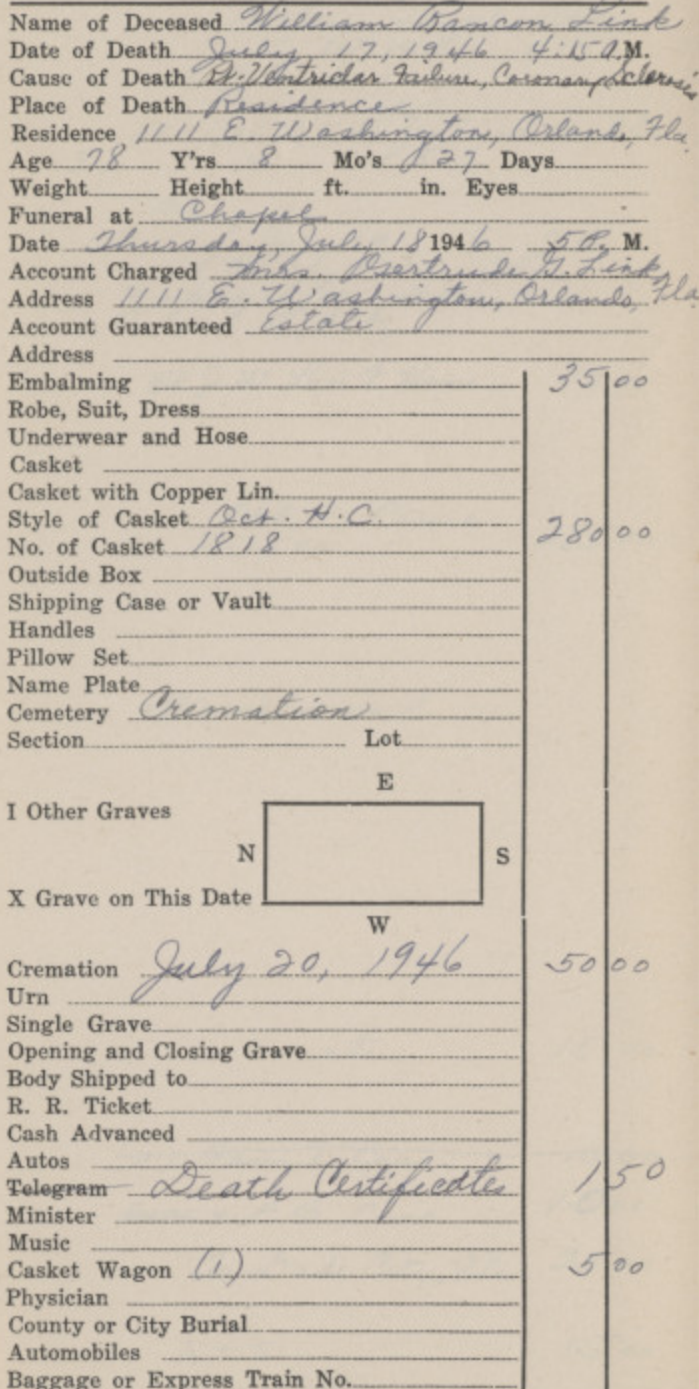 Name of Deceased William Rancon Link
Date of Death July 17, 1946 4:15 A.M.
Cause of Death Rt. Ventricular Failure, Coronary Sclerosis
Place of Death Residence
Residence 1111 E. Washington, Orlando, Fla.
Age 78 Y'rs 8 Mo's 27 Days
Weight Height ft. in. Eyes
Funeral at Chapel
Date Thursday, July 18 1946 5 P. M.
Account Charged Mrs. Gertrude G. Link
Address 1111 E. Washington, Orlando, Fla
Account Guaranteed Estate
Address
Embalming 35 00
Robe, Suit, Dress
Underwear and Hose
Casket
Casket with Copper Lin.
Style of Casket Oct. H.C.
No. of Casket 1818 280 00
Outside Box
Shipping Case or Vault
Handles
Pillow Set
Name Plate
Cemetery Cremation
Section Lot
E
I Other Graves
N S
X Grave on This Date
W
Cremation July 20, 1946 50 00
Urn
Single Grave
Opening and Closing Grave
Body Shipped to
R. R. Ticket
Cash Advanced
Autos
Telegram Death Certificates 1 50
Minister
Music
Casket Wagon (1) 5 00
Physician
County or City Burial
Automobiles
Baggage or Express Train No.